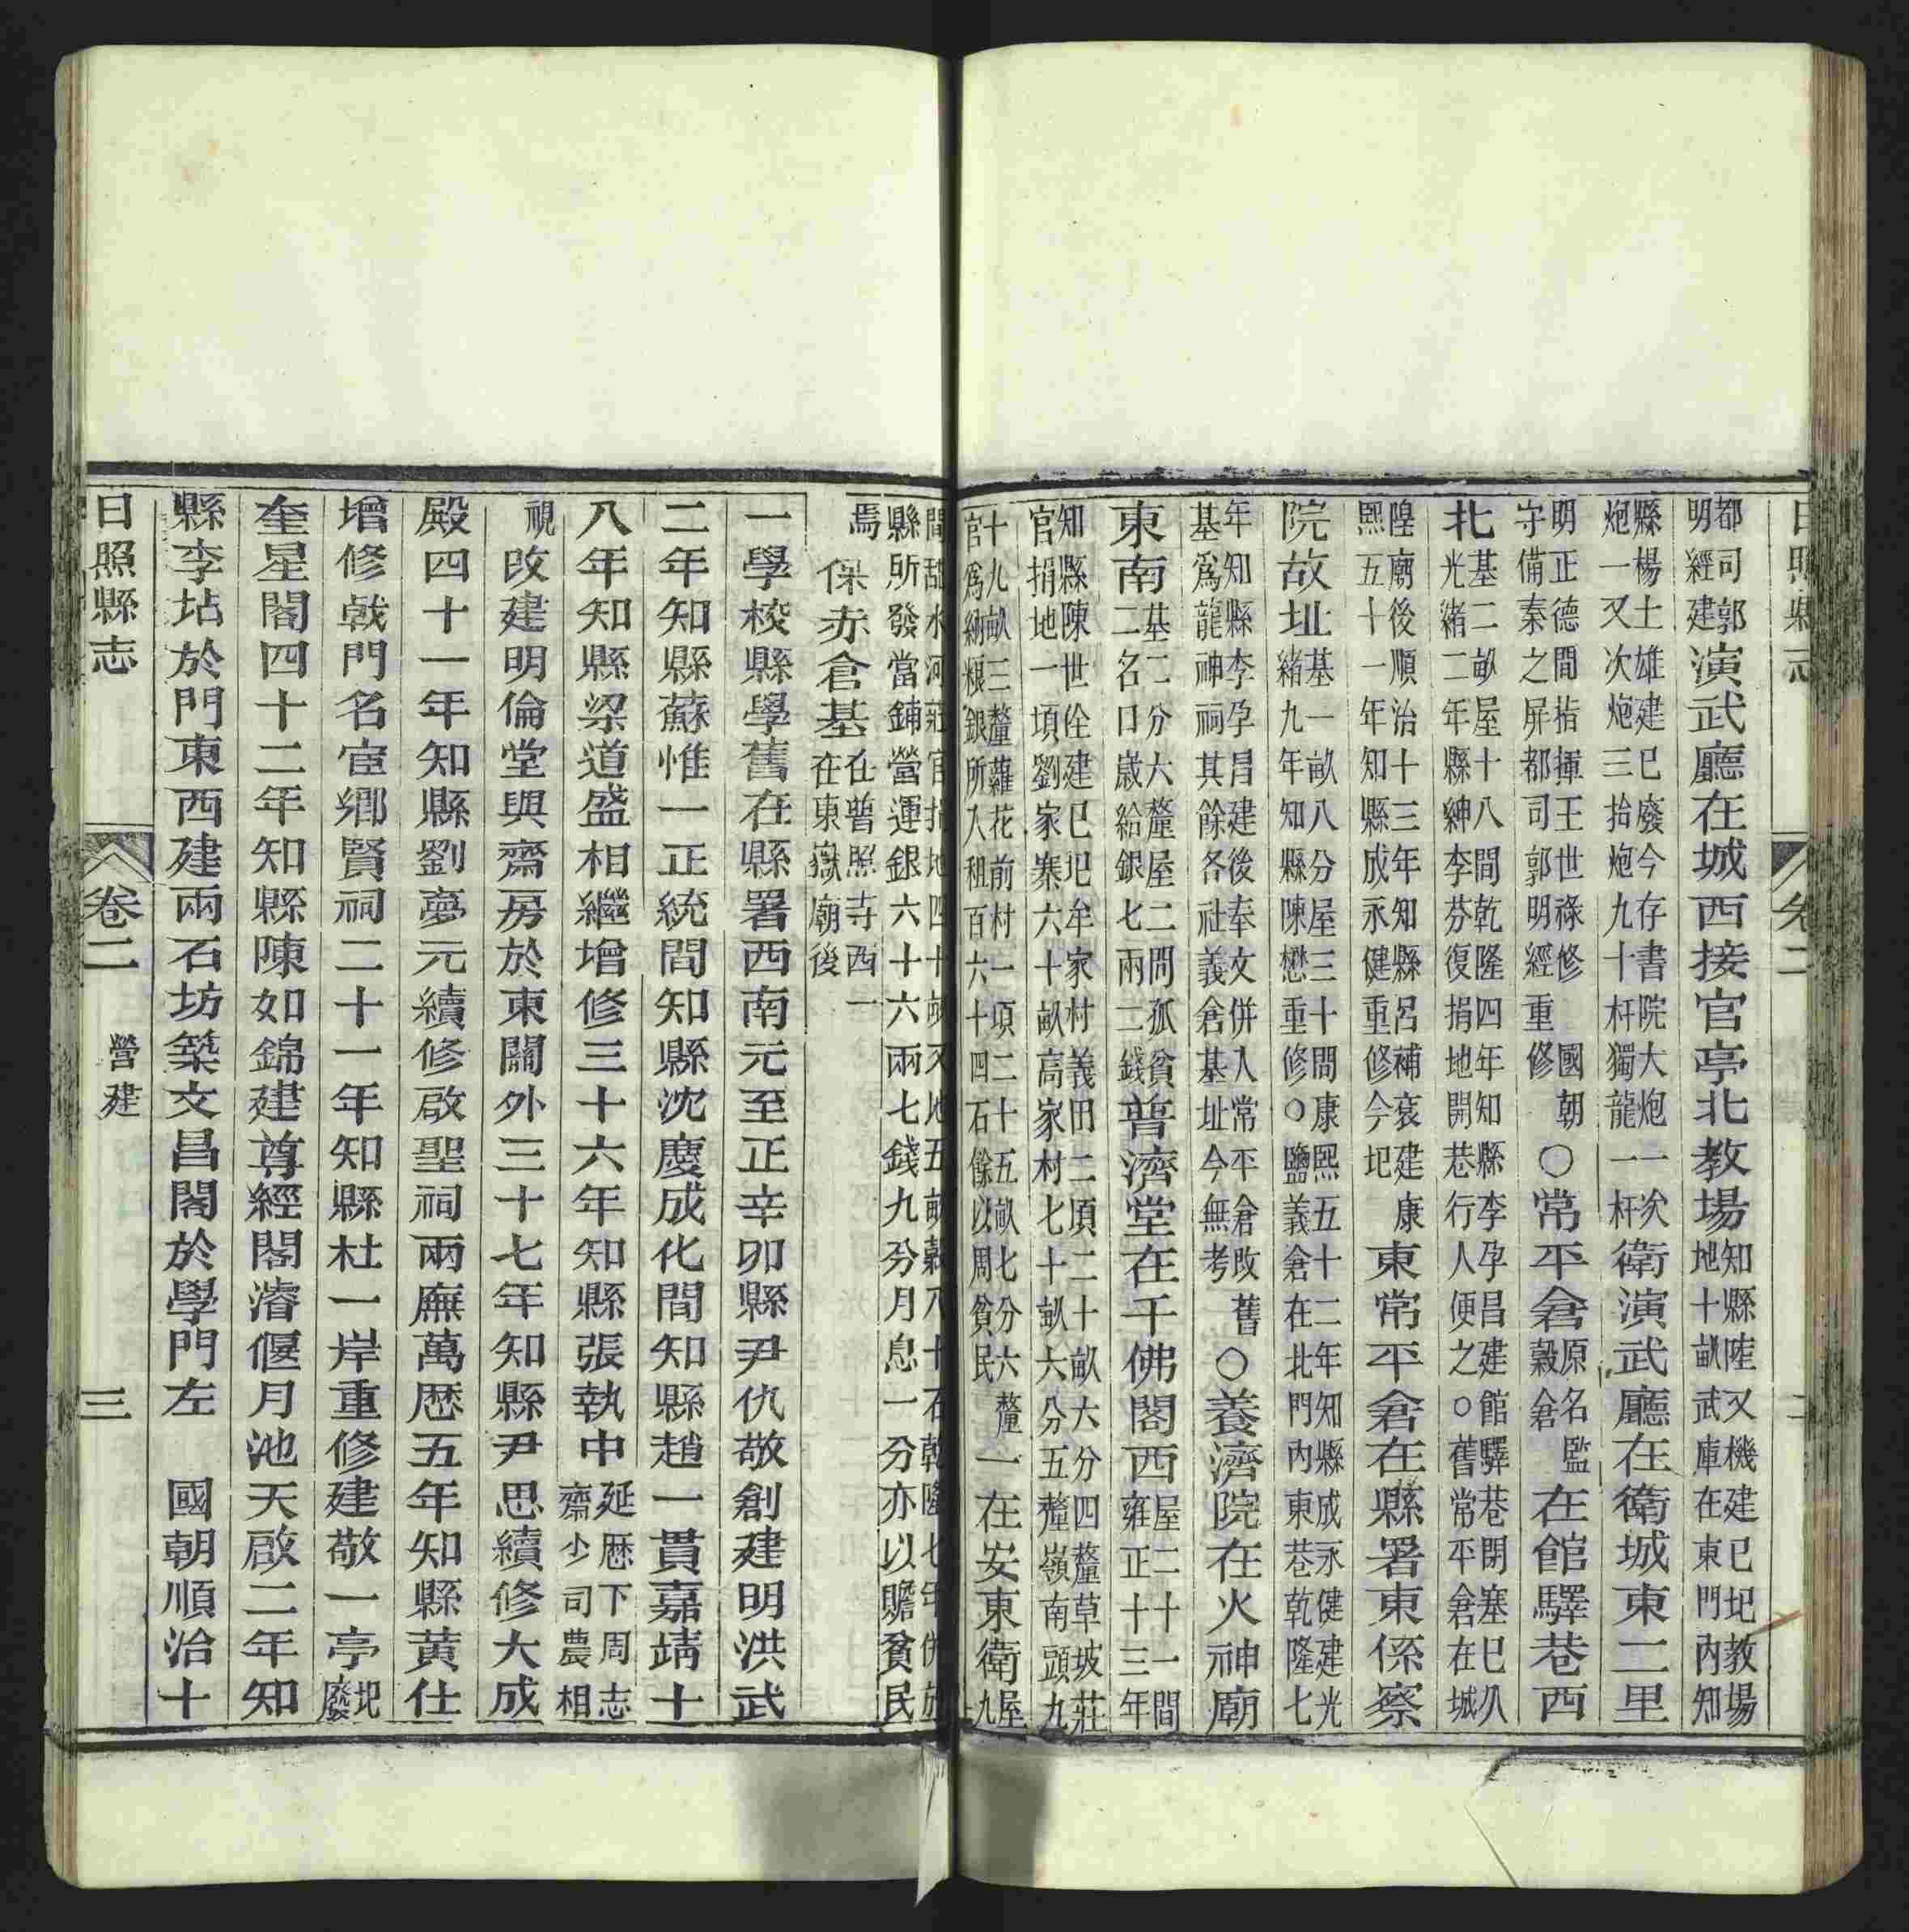 日照縣志 卷二 二
都司郭明經建演武廳在城西接官亭北教場知縣陸又機建已圮教場地十畝武庫在東門內知
縣楊士雄建已廢今存書院大炮一次炮一又次炮三抬炮九十杆獨龍一杆衛演武廳在衛城東二里
明正德間指揮王世祿修國朝守備秦之屏都司郭明經重修○常平倉原名監穀倉在館驛巷西
北基二畝屋十八間乾隆四年知縣李孕昌建館驛巷閉塞已久光緒二年縣紳李芬復捐地開巷行人便之○舊常平倉在城
隍廟後順治十三年知縣呂補袞建康熙五十一年知縣成永健重修今圮東常平倉在縣署東係察
院故址基一畝八分屋三十間康熙五十二年知縣成永健建光緒九年知縣陳懋重修○鹽義倉在北門內東巷乾隆七
年知縣李孕昌建後奉文併入常平倉改舊基爲龍神祠其餘各社義倉基址今無考○養濟院在火神廟
東南基二分六釐屋二間孤貧二名口歲給銀七兩二錢普濟堂在千佛閣西屋二十一間雍正十三年
知縣陳世佺建已圮牟家村義田二頃二十畝六分四釐草坡莊官捐地一頃劉家寨六十畝高家村七十畝六分五釐嶺南頭九
十九畝三釐蘿花前村一項二十五畝七分六釐官爲納粮銀所入租百六十四石餘以周貧民一在安東衛屋九
間甜水河莊官捐地四十畝又地五畝穀八十石乾隆七年併於縣所發當鋪營運銀六十六兩七錢九分月息一分亦以贍貧民
焉 保赤倉基在普照寺西一在東嶽廟後
一學校縣學舊在縣署西南元至正辛卯縣尹仇敬創建明洪武
二年知縣蘇惟一正統間知縣沈慶成化間知縣趙一貫嘉靖十
八年知縣梁道盛相繼增修三十六年知縣張執中延歷下周志齋少司農相
視改建明倫堂與齋房於東關外三十七年知縣尹思續修大成
殿四十一年知縣劉夢元續修啟聖祠兩廡萬歷五年知縣黃仕
增修戟門名宦鄉賢祠二十一年知縣杜一岸重修建敬一亭圮廢
奎星閣四十二年知縣陳如錦建尊經閣濬偃月池天啟二年知
縣李坫於門東西建兩石坊築文昌閣於學門左 國朝順治十
日照縣志 卷二 營建 三